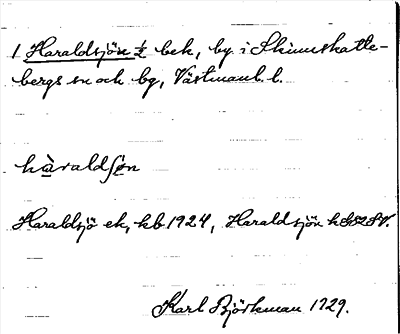 1 Haraldsjön ½ bek, by i Skinnskatte-
bergs sn och bg, Västmanl. l.
hàraldʃøn
Haraldsjö ek, kb 1924, Haraldsjön
Karl Björkman 1929.